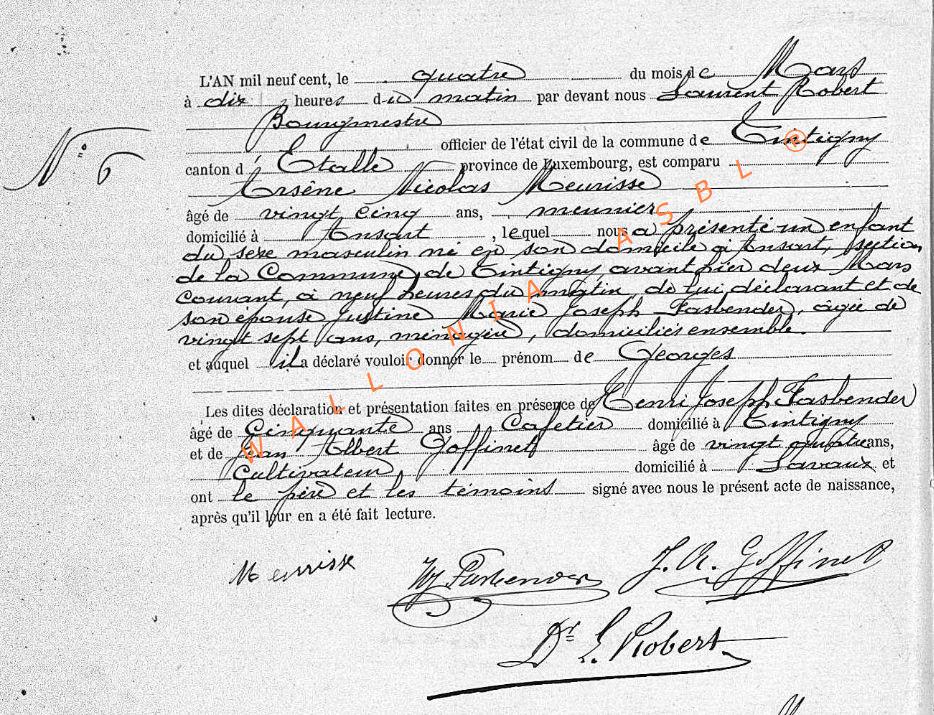 L'AN mil neuf cent, le quatre du mois de Mars
à dix heures du matin par devant nous Laurent Robert
Bourgmestre
officier de l'état civil de la commune de Tintigny
N° 6
canton d' Etalle province de Luxembourg, est comparu
Arsène Nicolas Meurisse
âgé de vingt cinq ans, meunier
domicilié à Ansart, lequel nous a présenté un enfant
du sexe masculin né en son domicile à Ansart, section
de la Commune de Tintigny avant hier deux Mars
courant, à neuf heures du matin, de lui, déclarant et de
son épouse Justine Marie Joseph Fasbender, âgée de
vingt sept ans, ménagère, domiciliés ensemble.
et auquel il a déclaré vouloir donner le prénom de Georges
Les dites déclaration et présentation faites en présence de Henri Joseph Fasbender
âgé de Cinquante ans Cafetier domicilié à Tintigny
et de Jean Albert Goffinet âgé de vingt quatre ans,
Cultivateur domicilié à Lavaux et
ont le père et les témoins signé avec nous le présent acte de naissance,
après qu'il leur en a été fait lecture.
Meurisse Hj Fasbender J. A. Goffinet
Dr L. Robert
WALLONIA ASBL ®